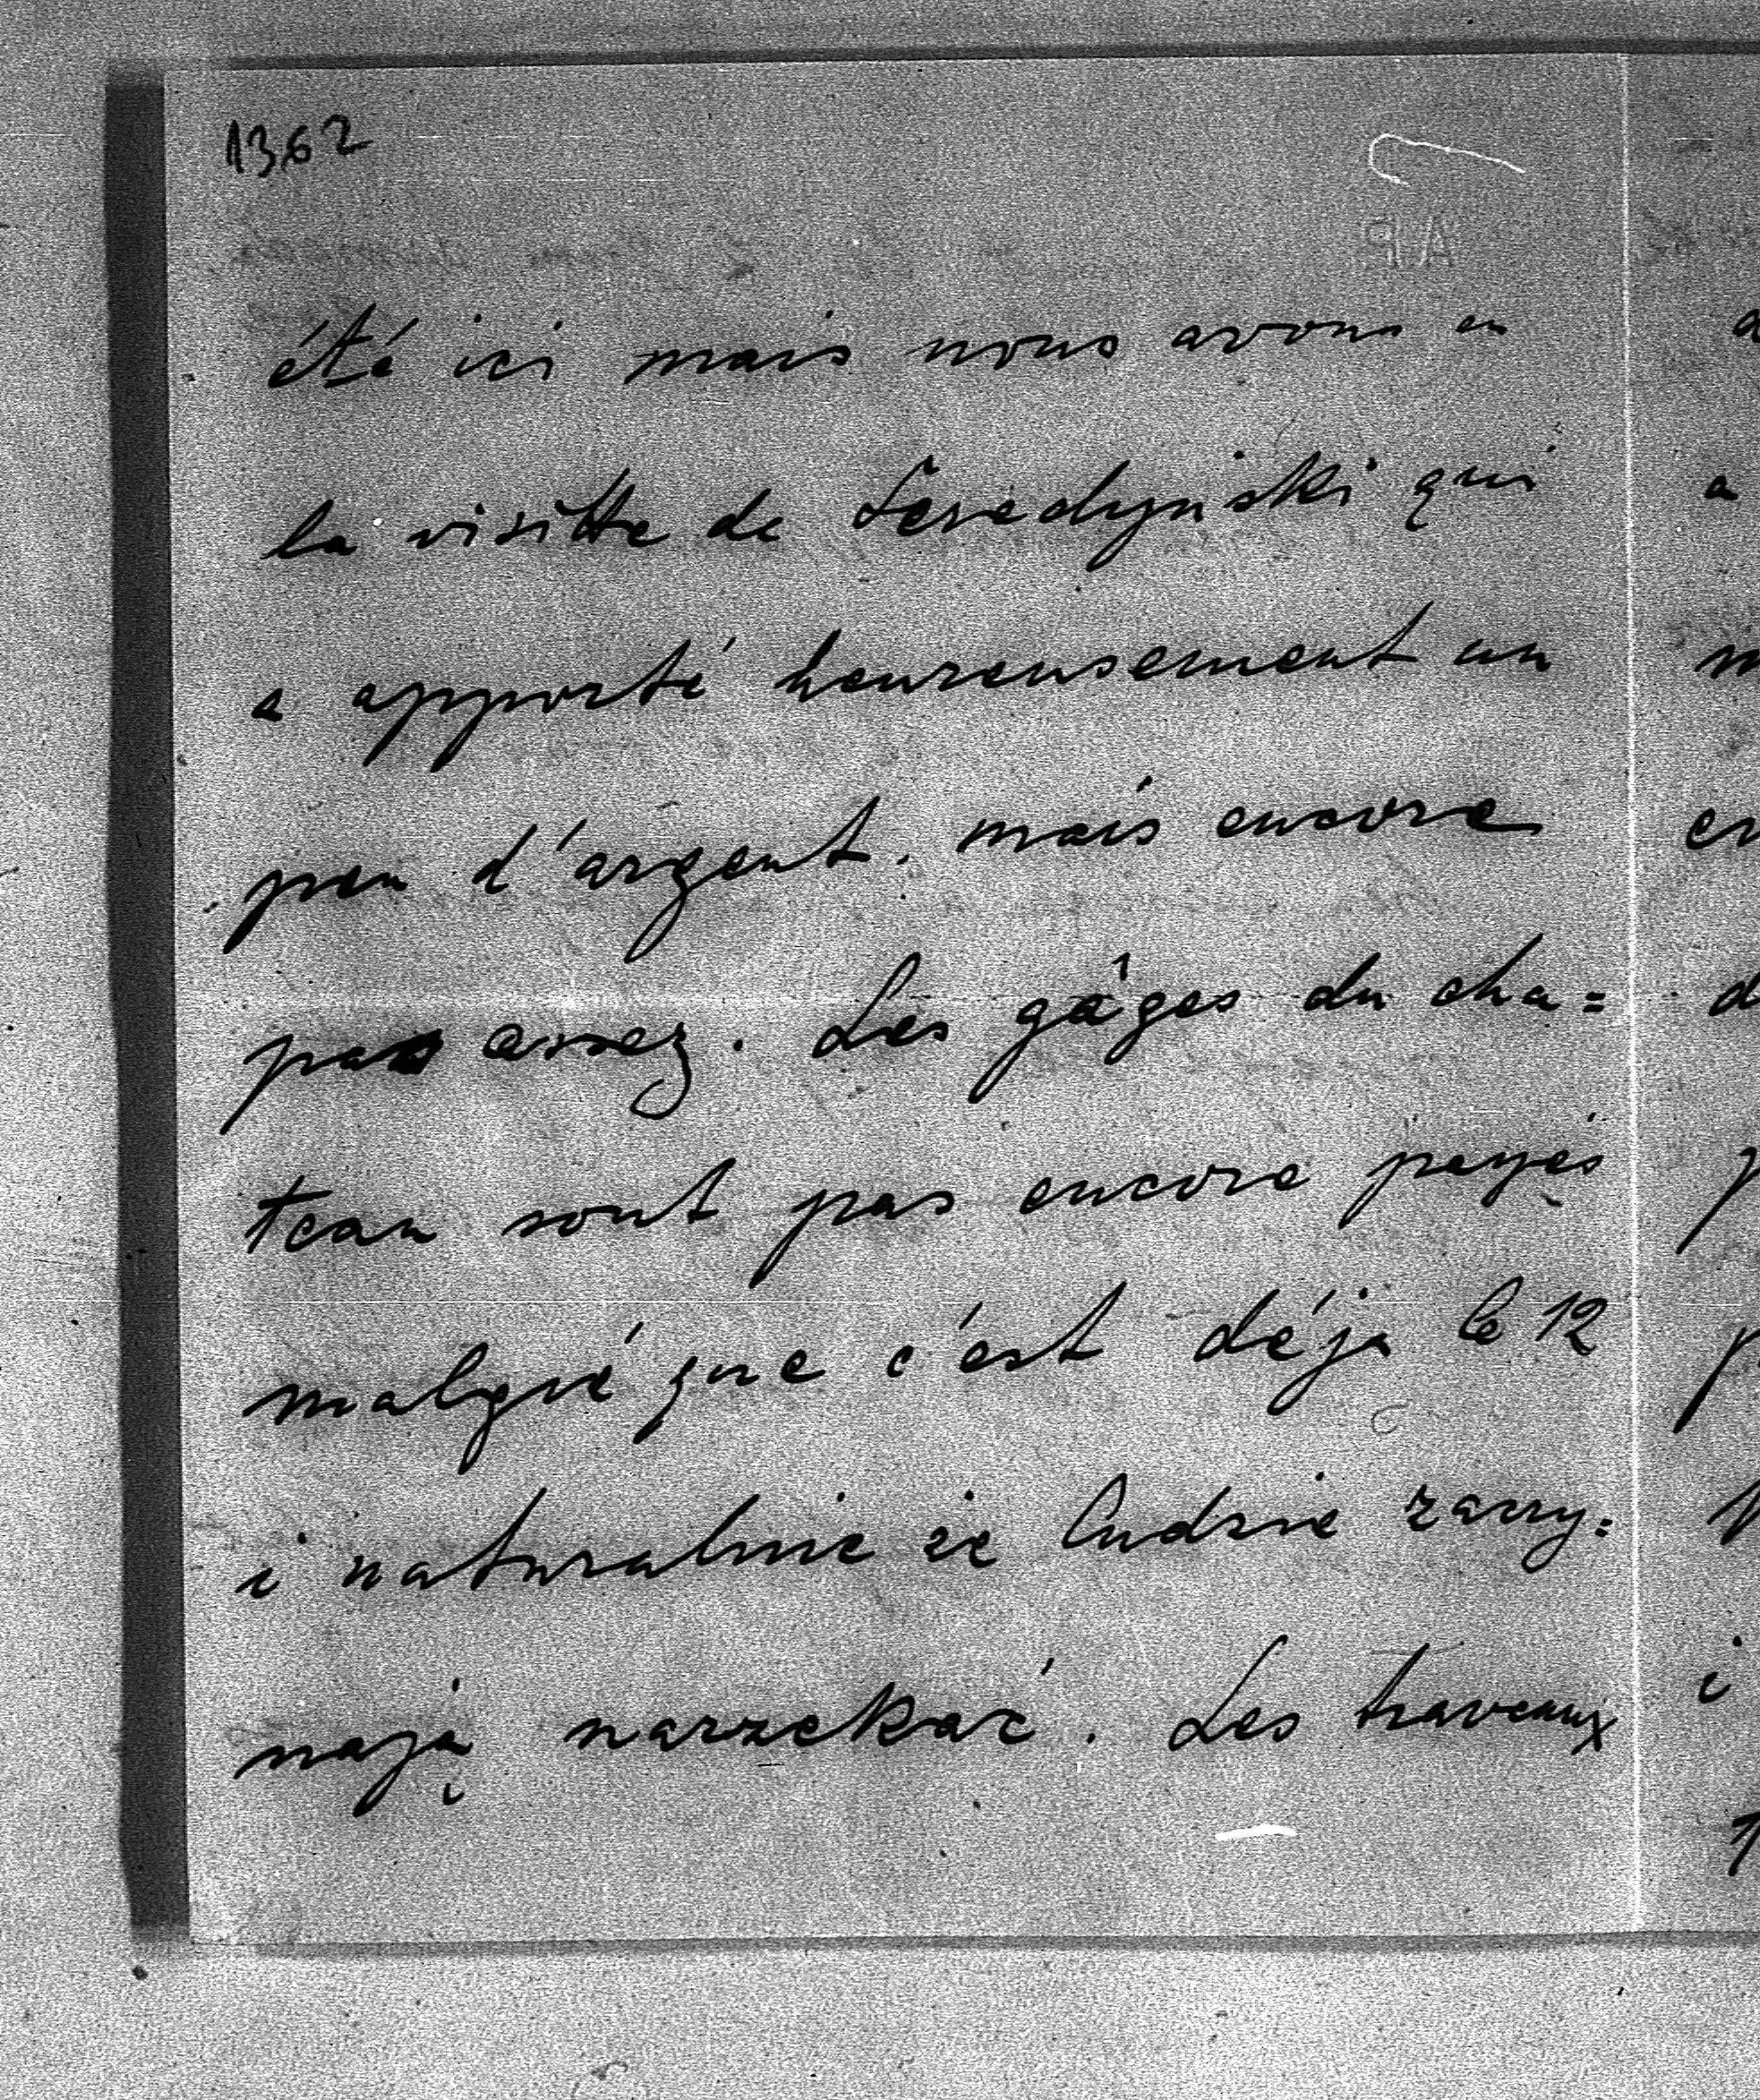 1362
été ici mais nous avons eu
la visitte de Seredyński qui
a apporté heureusement un
peu d'argent. mais encore
pas assez. Les gâges du cha=
teau sont pas encore peyés
malgré que c'est déja le 12
i naturalnie że ludzie zaczy=
nają narzekać. Les traveaux